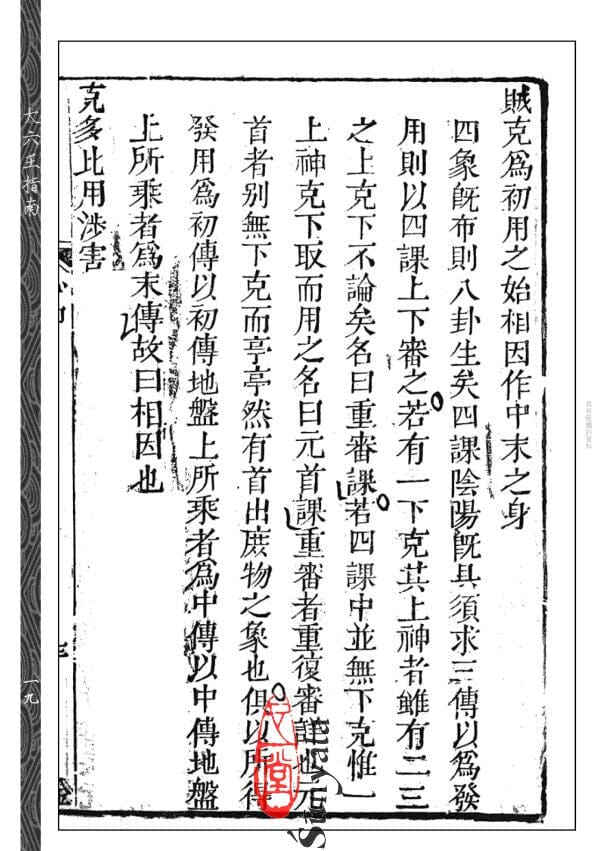 賊克爲初用之始相因作中末之身
四象旣布則八卦生矣四課陰陽旣具須求三傳以爲發
用則以四課上下審之若有一下克其上神者雖有二三
之上克下不論矣名曰重審課若四課中並無下克惟一
上神克下取而用之名曰元首課重審者重復審詳也元
首者别無下克而亭亭然有首出庶物之象也俱以所得
發用爲初傳以初傳地盤上所乘者為中傳以中傳地盤
上所乘者爲末傳故曰相因也
克多比用渉害
大六壬指南
一九
心一堂
Sunyata
具有版權的資料